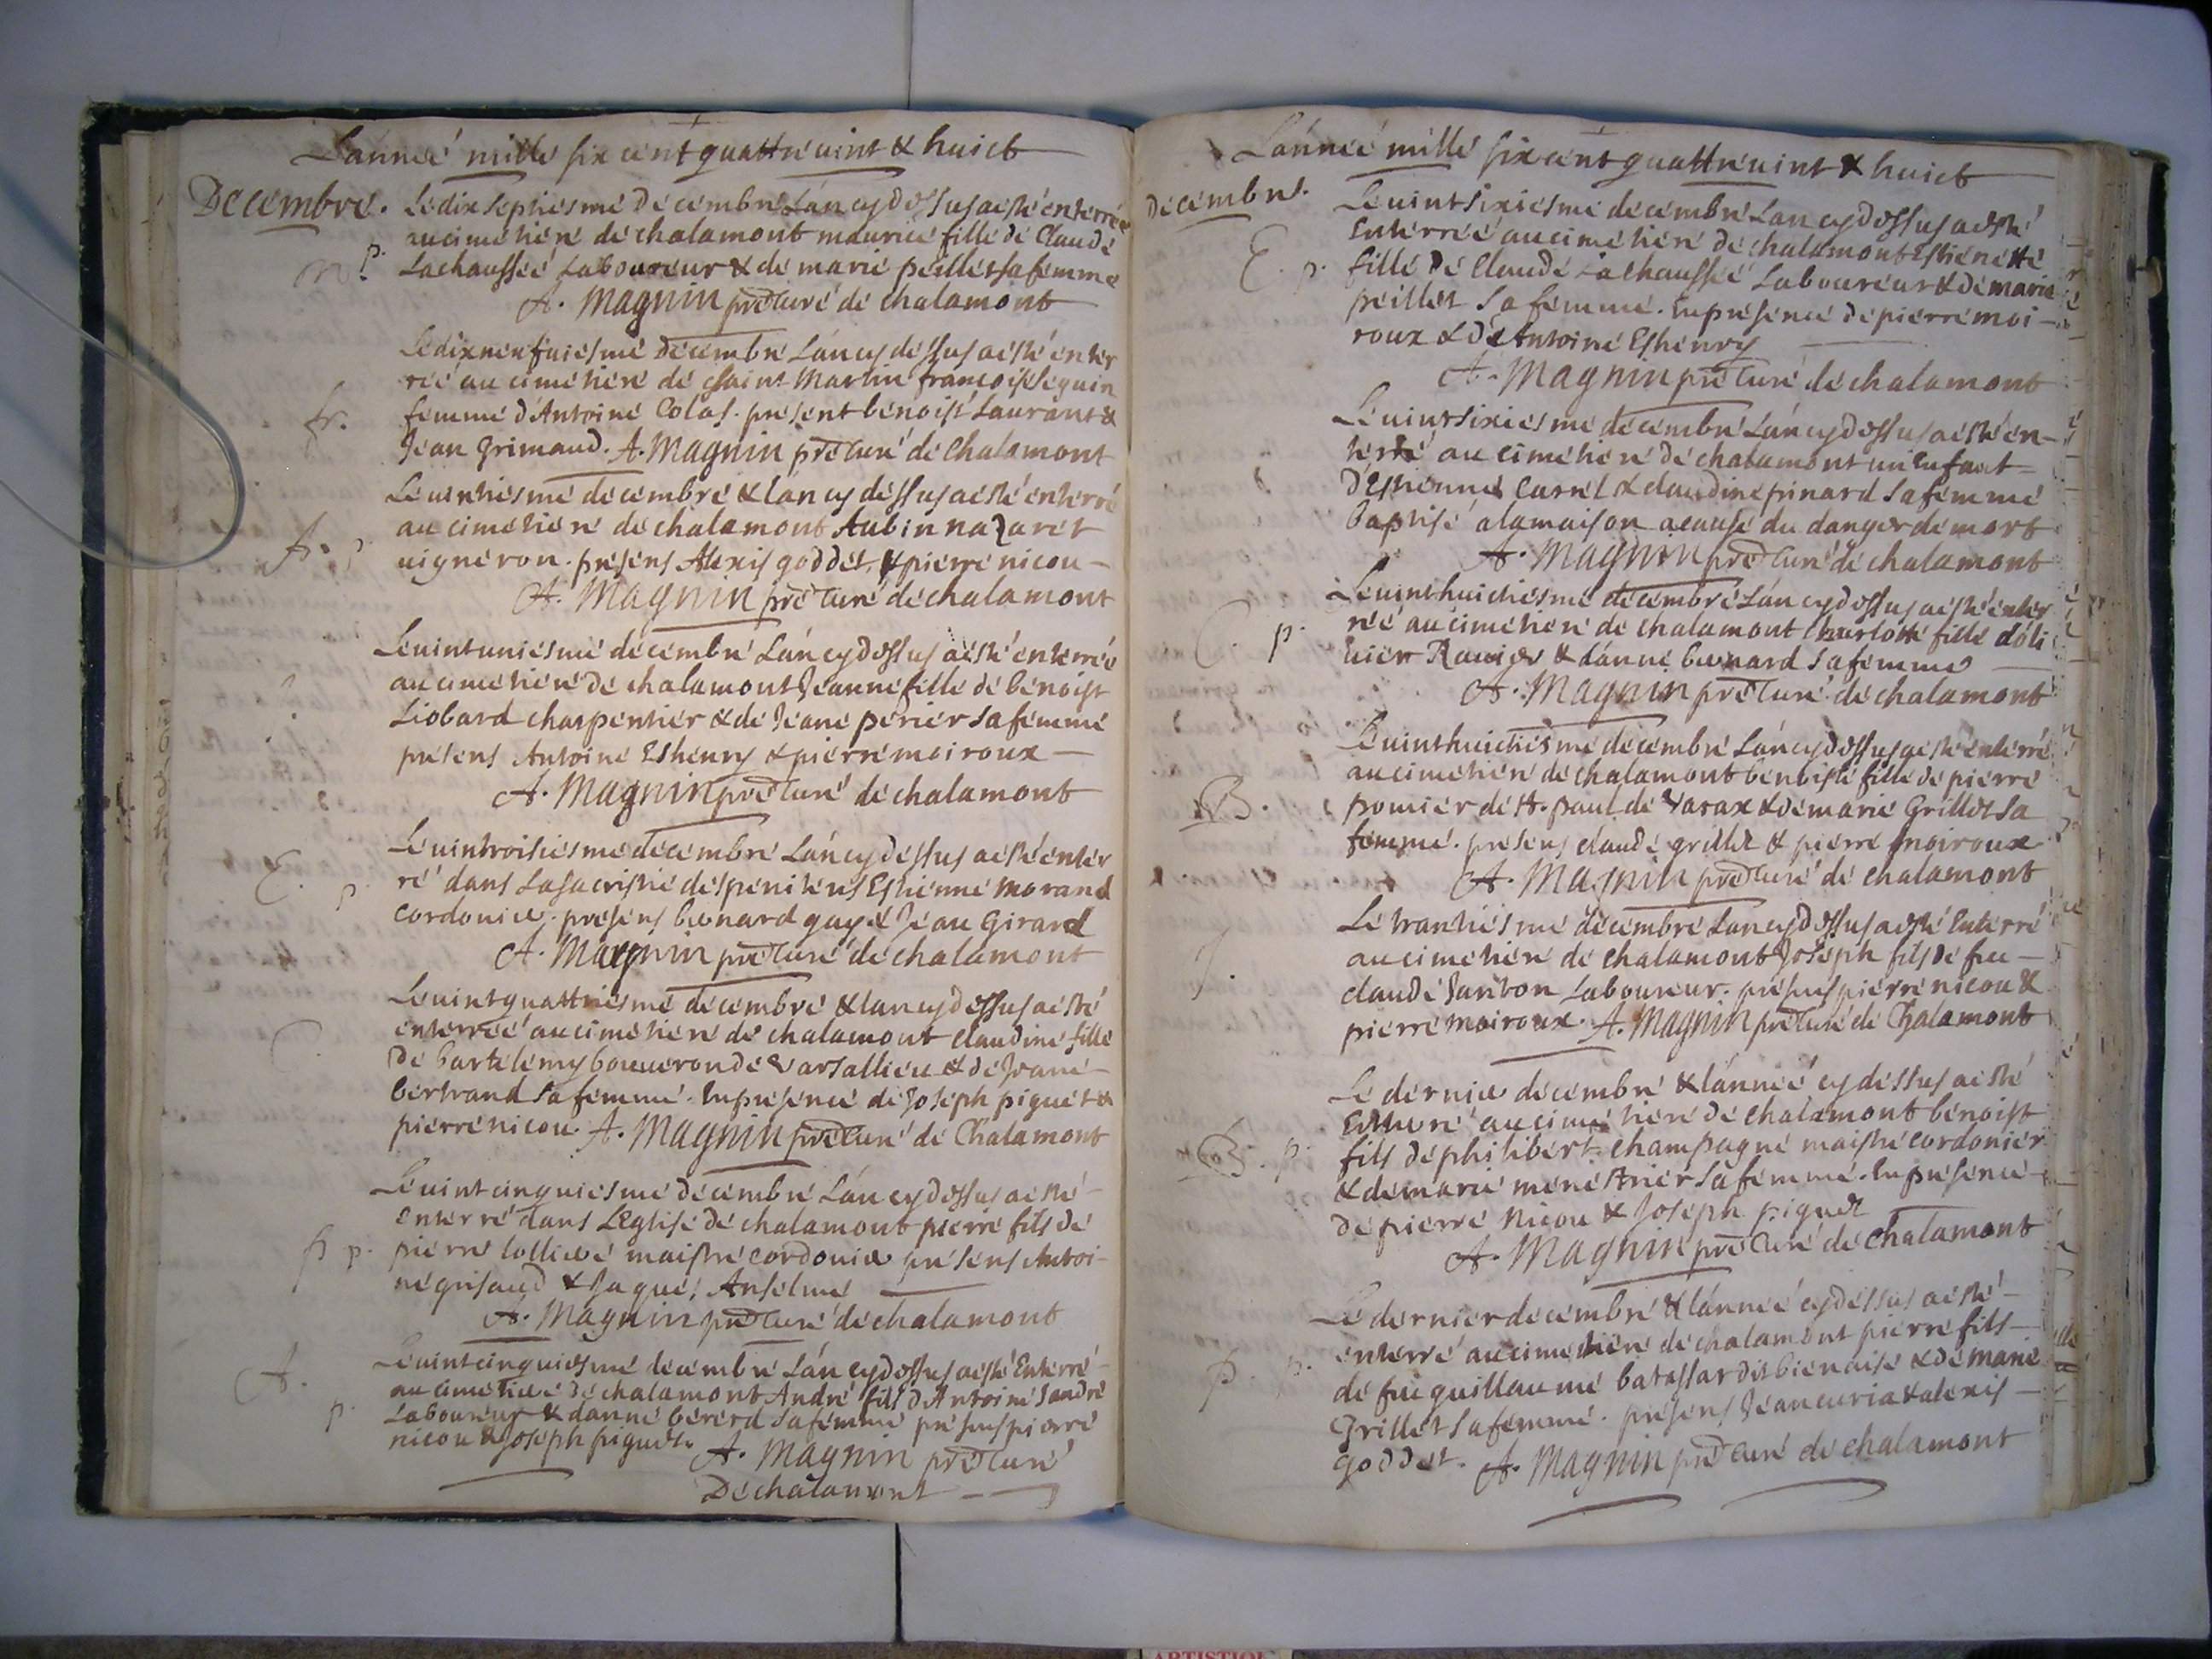 L'année mille six cent quattre uint & huict
Decembre. Le dix septiesme decembre L'an cy dessus a esté enterrée
au cimetiere de chalamont maurice fille de Claude
m. p. Lachaussée Laboureur & de marie peillet sa femme
A. Magnin prêtre curé de chalamont
Le dix neufuiesme decembre L'an cy dessus a esté enter
rée au cimetiere de saint Martin françoise Seguin
fr. femme d'Antoine Colas. present benoist Laurant &
Jean Grimaud. A. Magnin pre curé de Chalamont
Le uintiesme decembre & l'an cy dessus a esté enterré
au cimetiere de chalamont Aubin nazaret
A. p uigneron. presens Alexis goddet & pierre nicou
A. Magnin pre curé de chalamont
Le uint uniesme decembre L'an cy dessus a esté enterrée
au cimetiere de chalamont Jeanne fille de benoist
Liobard charpentier & de Jeane perier sa femme
presens Antoine Esthenry & pierre moiroux
A. Magnin pre curé de chalamont
Le uintroisiesme decembre L'an cy dessus a esté enter
E. p ré dans La sacristie des penitens Estienne morand
cordonier. presens bernard guy & Jean Girard
A. Magnin pre curé de chalamont
Le uint quattriesme decembre & l'an cy dessus a esté
enterrée au cimetiere de chalamont claudine fille
C. de bartelemy bouueron de Varsallieu & de Jeane
bertrand sa femme. En presence de Joseph piquet &
pierre nicou. A. Magnin pre curé de Chalamont
Le uint cinquiesme decembre L'an cy dessus a esté
enterré dans L'Eglise de chalamont pierre fils de
p p. pierre maistre cordonier presens Antoi
ne grisaud & Jaques Anselme
A. Magnin pre curé de chalamont
Le uint cinquiesme decembre L'an cy dessus a esté Enterré
A. au cimetiere de chalamont André fils d'Antoine Jandre
p. Laboureur & danne bererd sa femme presens pierre
nicou & Joseph piquet. A. Magnin pre curé
De chalamont
L'année mille six cent quattre uint & huict
decembre. Le uint sixiesme decembre L'an cy dessus a esté
Enterrée au cimetiere de chalamont Estienette
E. p. fille de Claude Lachaussée Laboureur & de marie
peillet sa femme. En presence de pierre moi
roux & de Antoine Esthenry
A. Magnin pre curé de chalamont
Le uint sixiesme decembre L'an cy dessus a esté en
terré au cimetiere de chalamont un Enfant
d'Estienne Carrel & claudine prinard sa femme
baptisé a la maison a cause du danger de mort
A. Magnin pre curé de chalamont
Le uint huictiesme decembre L'an cy dessus a esté enter
C. p. rée au cimetiere de chalamont charlotte fille d'oli
uier Rauier & d'anne bernard sa femme
A. Magnin pre curé de chalamont
Le uint huictiesme decembre L'an cy dessus a esté enterré
au cimetiere de chalamont benoiste fille de pierre
B. pomier de st. paul de Varax & de marie Grillet sa
femme. presens claude grillet & pierre moiroux
A. Magnin pre curé de chalamont
Le trantiesme decembre L'an cy dessus a esté Enterré
J. au cimetiere de chalamont Joseph fils de feu
claude Janton Laboureur. presens pierre nicou &
pierre moiroux. A. Magnin pre curé de Chalamont
Le dernier decembre & l'année cy dessus a esté
Enterré au cimetiere de chalamont benoist
B. p. fils de philibert champagne maistre cordonier
& de marie menestrier sa femme. En presence
de pierre nicou & Joseph piquet
A. Magnin pre curé de chalamont
Le dernier decembre & l'année cy dessus a esté
enterré au cimetiere de chalamont pierre fils
p. p. de feu guillaume batassar dit bienaise & de marie
Grillet sa femme. presens Jean curia & alexis
goddet. A. Magnin pre curé de chalamont